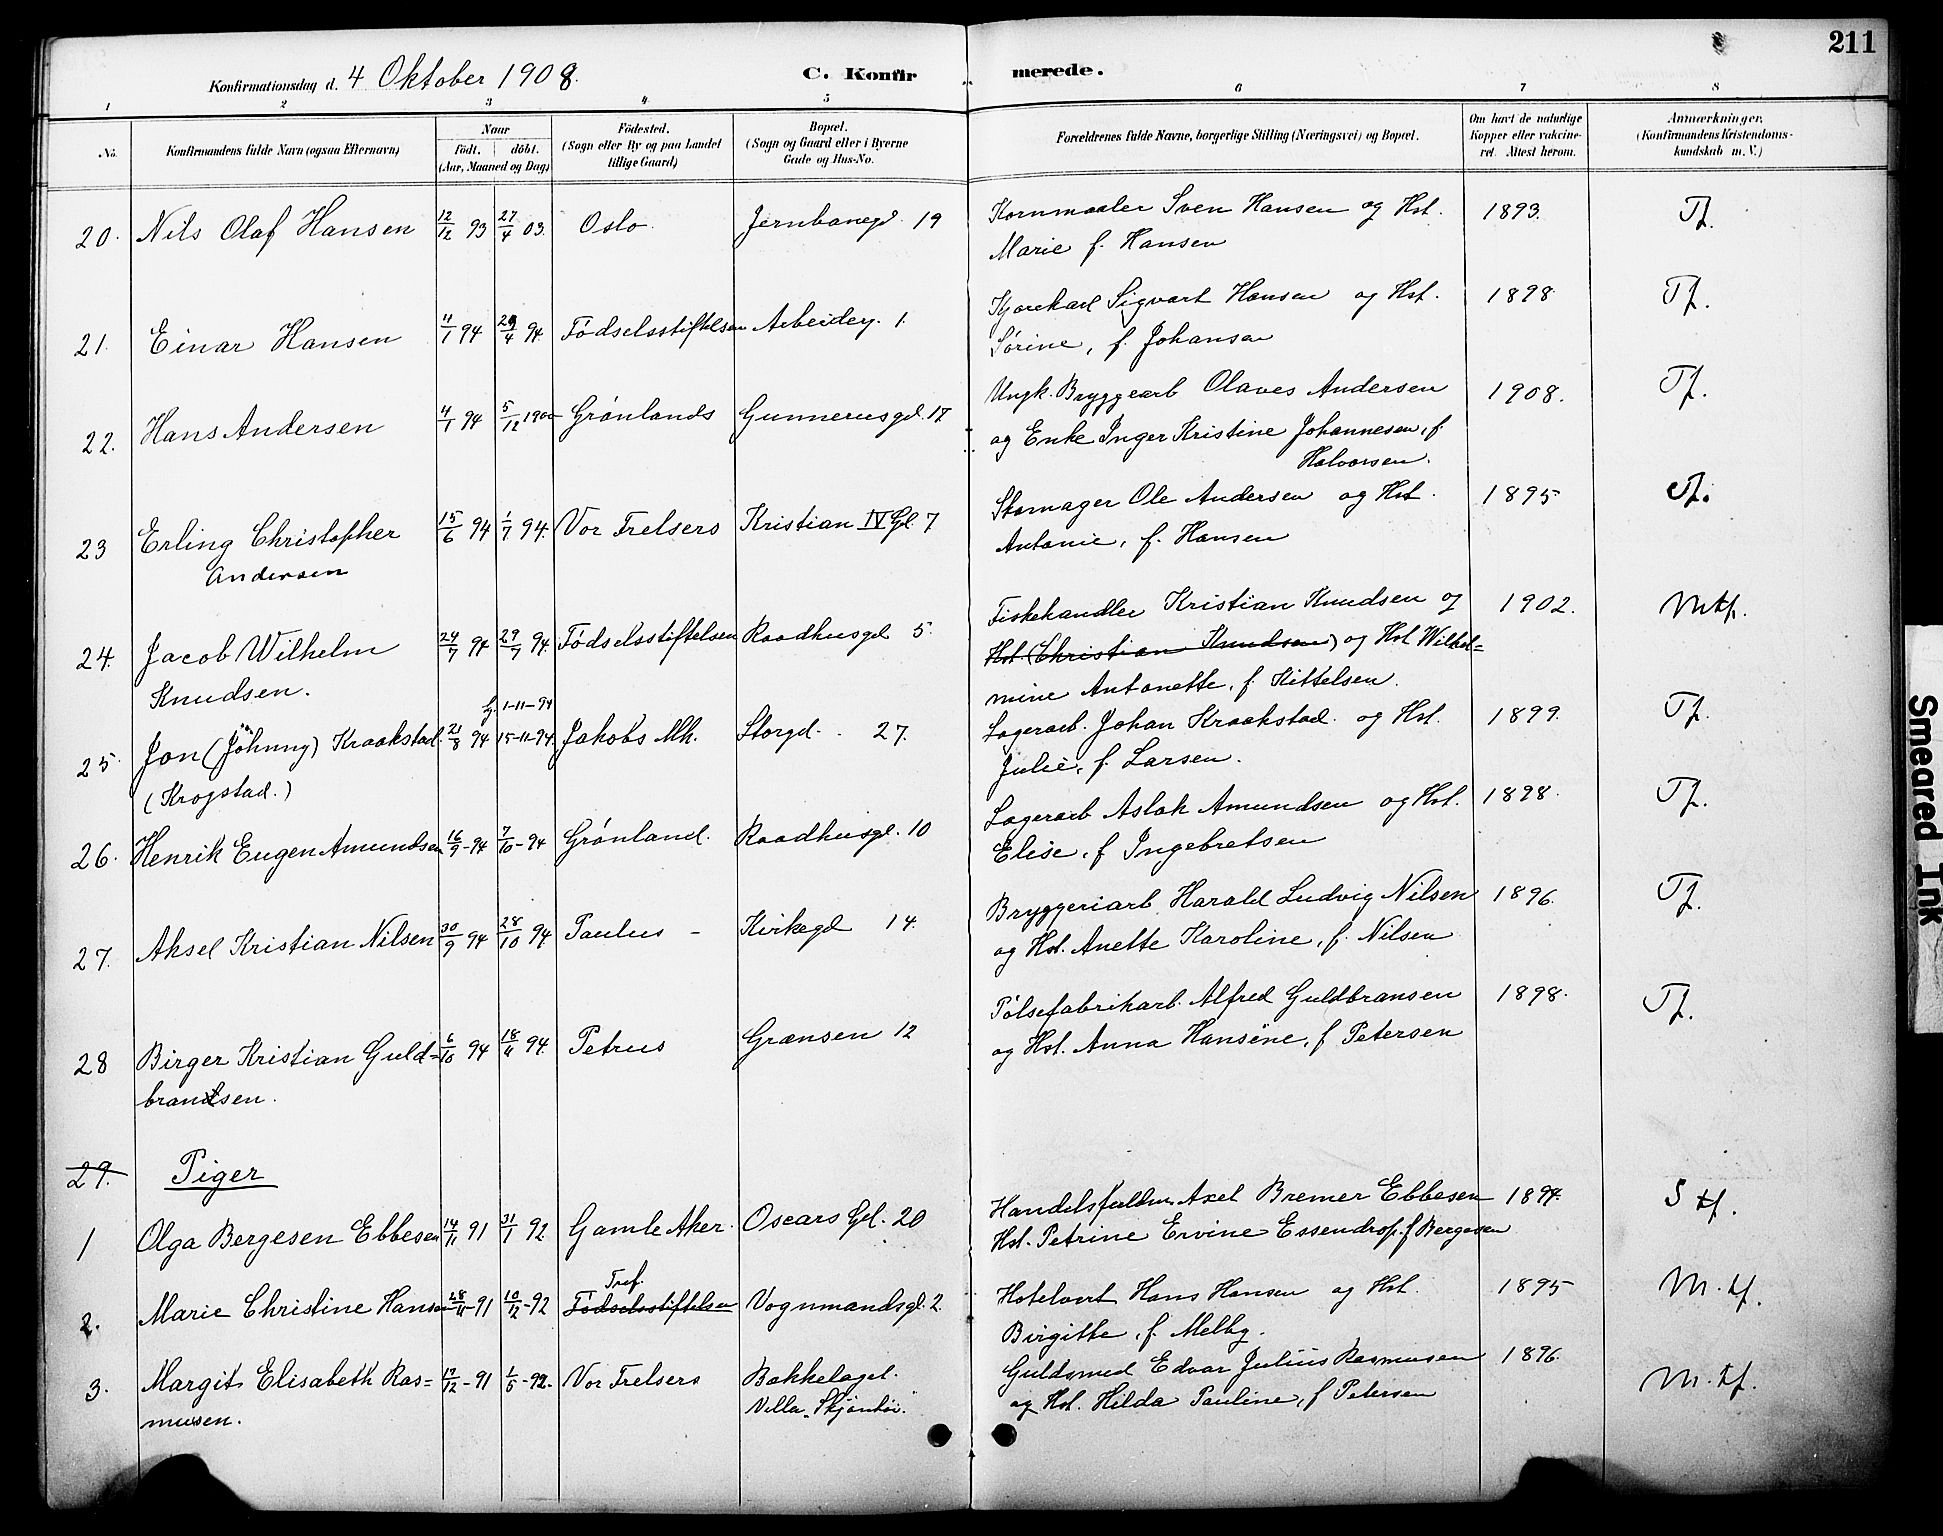 211
Konfirmationsdag d. 4 Oktober 1908.
C. Konfirmerede.
1 2 3 4 5 6 7 8
No. Konfirmandens fulde Navn (ogsaa Efternavn) Naar født. døbt. (Aar, Maaned og Dag) Fødested. (Sogn eller By og paa Landet tillige Gaard) Bopæl. (Sogn og Gaard eller i Byerne Gade og Hus-No. Forældrenes fulde Navne, borgerlige Stilling (Næringsvei) og Bopæl. Om havt de naturlige Kopper eller vaccineret. Attest herom. Anmærkninger. (Konfirmandens Kristendomskundskab m. V.)
20. Nils Olaf Hansen 12/12 93 27/4 03. Oslo. Jernbanegd. 19 Kornmaaler Sven Hansen og Hst. 1893. Tf.
Marie f. Hansen
21. Einar Hansen 4/1 94 29/4 94. Fødselsstiftelsen Arbeiderg. 1. Kjørekarl Sigvart Hansen og Hst. 1898 Tf.
Sørine, f. Johansen
22. Hans Andersen 4/1 94 5/12 1900 Grønlands Gunnerusgd. 17 Ungk. Bryggearb Olaves Andersen 1908. Tf.
og Enke Inger Kristine Johannesen, f.
Halvorsen.
23 Erling Christopher 15/6 94 1/7 94. Vor Frelsers Kristian IV Gd. 7 Stomager Ole Andersen og Hst. 1895 Tf.
Andersen Antonie, f. Hansen
24. Jacob Wilhelm 24/7 94 29/7 94. Fødselsstiftelsen Raadhusgd 5. Fiskehandler Kristian Knudsen og 1902. Mtf.
Knudsen. Hst. (Christian Knudsen) og Hst Wilhel=
mine Antonette, f. Kittelsen.
1-11-94
25. Jon (Johnny) Kraakstad. 21/8 94 15-11-94. Jakobs Mh. Storgd. 27. Lagerarb. Johan Kraakstad. og Hst. 1899. Tf.
(Krogstad.) Julie, f. Larsen.
26. Henrik Eugen Amundsen 16/9-94 7/10-94 Grønland. Raadhusgd. 10 Lagerarb Aslak Amundsen og Hst. 1898. Tf.
Elise, f Ingebretsen
27. Aksel Kristian Nilsen 30/9 94 28/10 94 Paulus - Kirkegd 14. Bryggeriarb Harald Ludvig Nilsen 1896. Tf.
og Hst. Anette Karoline, f. Nilsen
28 Birger Kristian Guld= 6/10 94 18/11 94. Petrus Grænsen 12 Pølsefabrikarb. Alfred Guldbransen 1898. Tf.
brandsen. og Hst. Anna Hansine, f Petersen
29. Piger
1 Olga Bergesen Ebbesen 14/11 91 31/1 92 Gamle Aker. Oscars Gd. 20 Handelsfuldm. Axel Bremer Ebbesen 1894. S tf.
Hst. Petrine Ervine Essendrop. f Bergesen
2. Marie Christine Hansen 28/11-91 10/12-92 Fødselsstiftelsen Tref. Vognmandsgd. 2. Hotelvert Hans Hansen og Hst. 1895 M. tf.
Birgitte, f. Melby.
3. Margit Elisabeth Ras= 17/12-91 1/5-92. Vor Frelsers Bakkelaget. Guldsmed Edvar Julius Rasmusen 1896. M. tf.
musen. Villa og Hst. Hilda Pauline, f Petersen
Smeared Ink